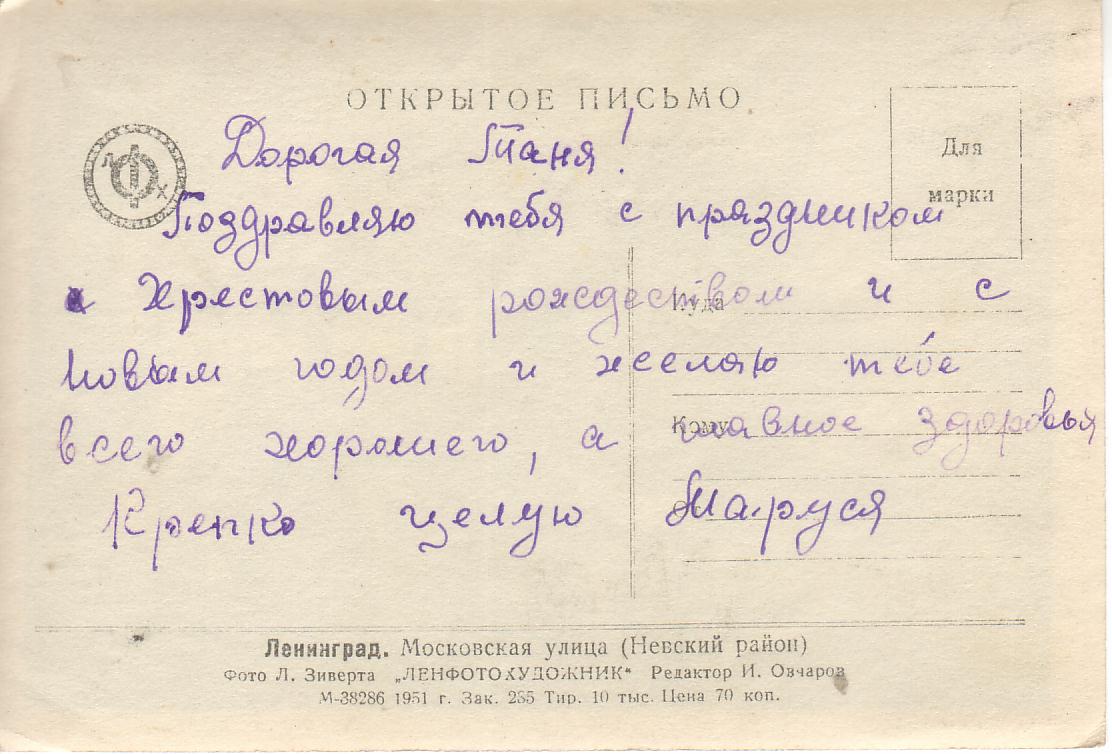 ОТКРЫТОЕ ПИСЬМО
ЛФХ
Для
марки
Дорогая Таня!
Поздравляю тебя с праздником
Хрестовым рождеством и с
Новым годом и желаю тебе
всего хорошего, а главное здоровья
Крепко целую Маруся
Куда
Кому
Ленинград. Московская улица (Невский район)
Фото Л. Зиверта „ЛЕНФОТОХУДОЖНИК“ Редактор И. Овчаров
М-38286 1951 г. Зак. 235 Тир. 10 тыс. Цена 70 коп.